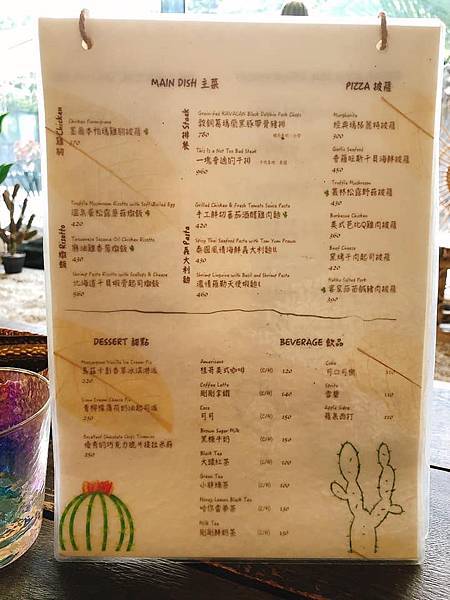 MAIN DISH 主菜
Chicken 雞腿
Chicken Parmigiana
370
Risotto 燉飯
Truffle Mushroom Risotto with Soft-Boiled Egg
溫泉蛋松露蕈菇燉飯
420
Taiwanese Sesame Oil Chicken Risotto
麻油雞春蔥燉飯
430
Shrimp Pasta Risotto with Scallops & Cheese
北海道干貝蝦膏起司燉飯
450
Steak 排餐
Grain-Fed KAVALAN Black Dolphin Pork Chops
穀飼噶瑪蘭黑豚帶骨豬排
780
This is a Not Too Bad Steak
一塊會過的牛排
960
Pasta 義大利麵
Grilled Chicken & Fresh Tomato Sauce Pasta
手工鮮切蕃茄酒醋雞肉麵
420
Spicy Thai Seafood Pasta with Tom Yum Prawn
泰國風情海鮮義大利麵
430
Shrimp Linguine with Basil and Shrimp
濃情羅勒天使蝦麵
460
PIZZA 披薩
Margherita
經典瑪格麗特披薩
300
Garlic Seafood
香蒜旺勒干貝海鮮披薩
Truffle Mushroom
叢林松露野菇披薩
450
Barbecue Chicken
美式芭比Q雞肉披薩
Beef Cheese
黑嘜牛肉起司披薩
420
Hakka Salted Pork
客家茄茄鹹豬肉披薩
390
DESSERT 甜點
Mascarpone Vanilla Ice Cream Pie
馬茲卡彭香草冰淇淋派
220
Lime Cream Cheese Pie
青檸檬薄荷奶油起司派
250
Excellent Chocolate Chips Tiramisu
優秀的巧克力脆片提拉米蘇
250
BEVERAGE 飲品
Americano
怪哥美式咖啡 (C/H) 120
Coffee Latte
剛剛拿鐵 (C/H) 140
Coco
可可 (C/H) 150
Brown Sugar Milk
黑糖牛奶 (C/H) 150
Black Tea
大鎮紅茶 (C/H) 100
Green Tea
小靜綠茶 (C/H) 100
Honey Lemon Black Tea
哈你當夢茶 (C/H) 150
Milk Tea
剛剛鮮奶茶 (C/H) 150
Coke
可口可樂 110
Sprite
雪碧 110
Apple Sidra
蘋果西打 110